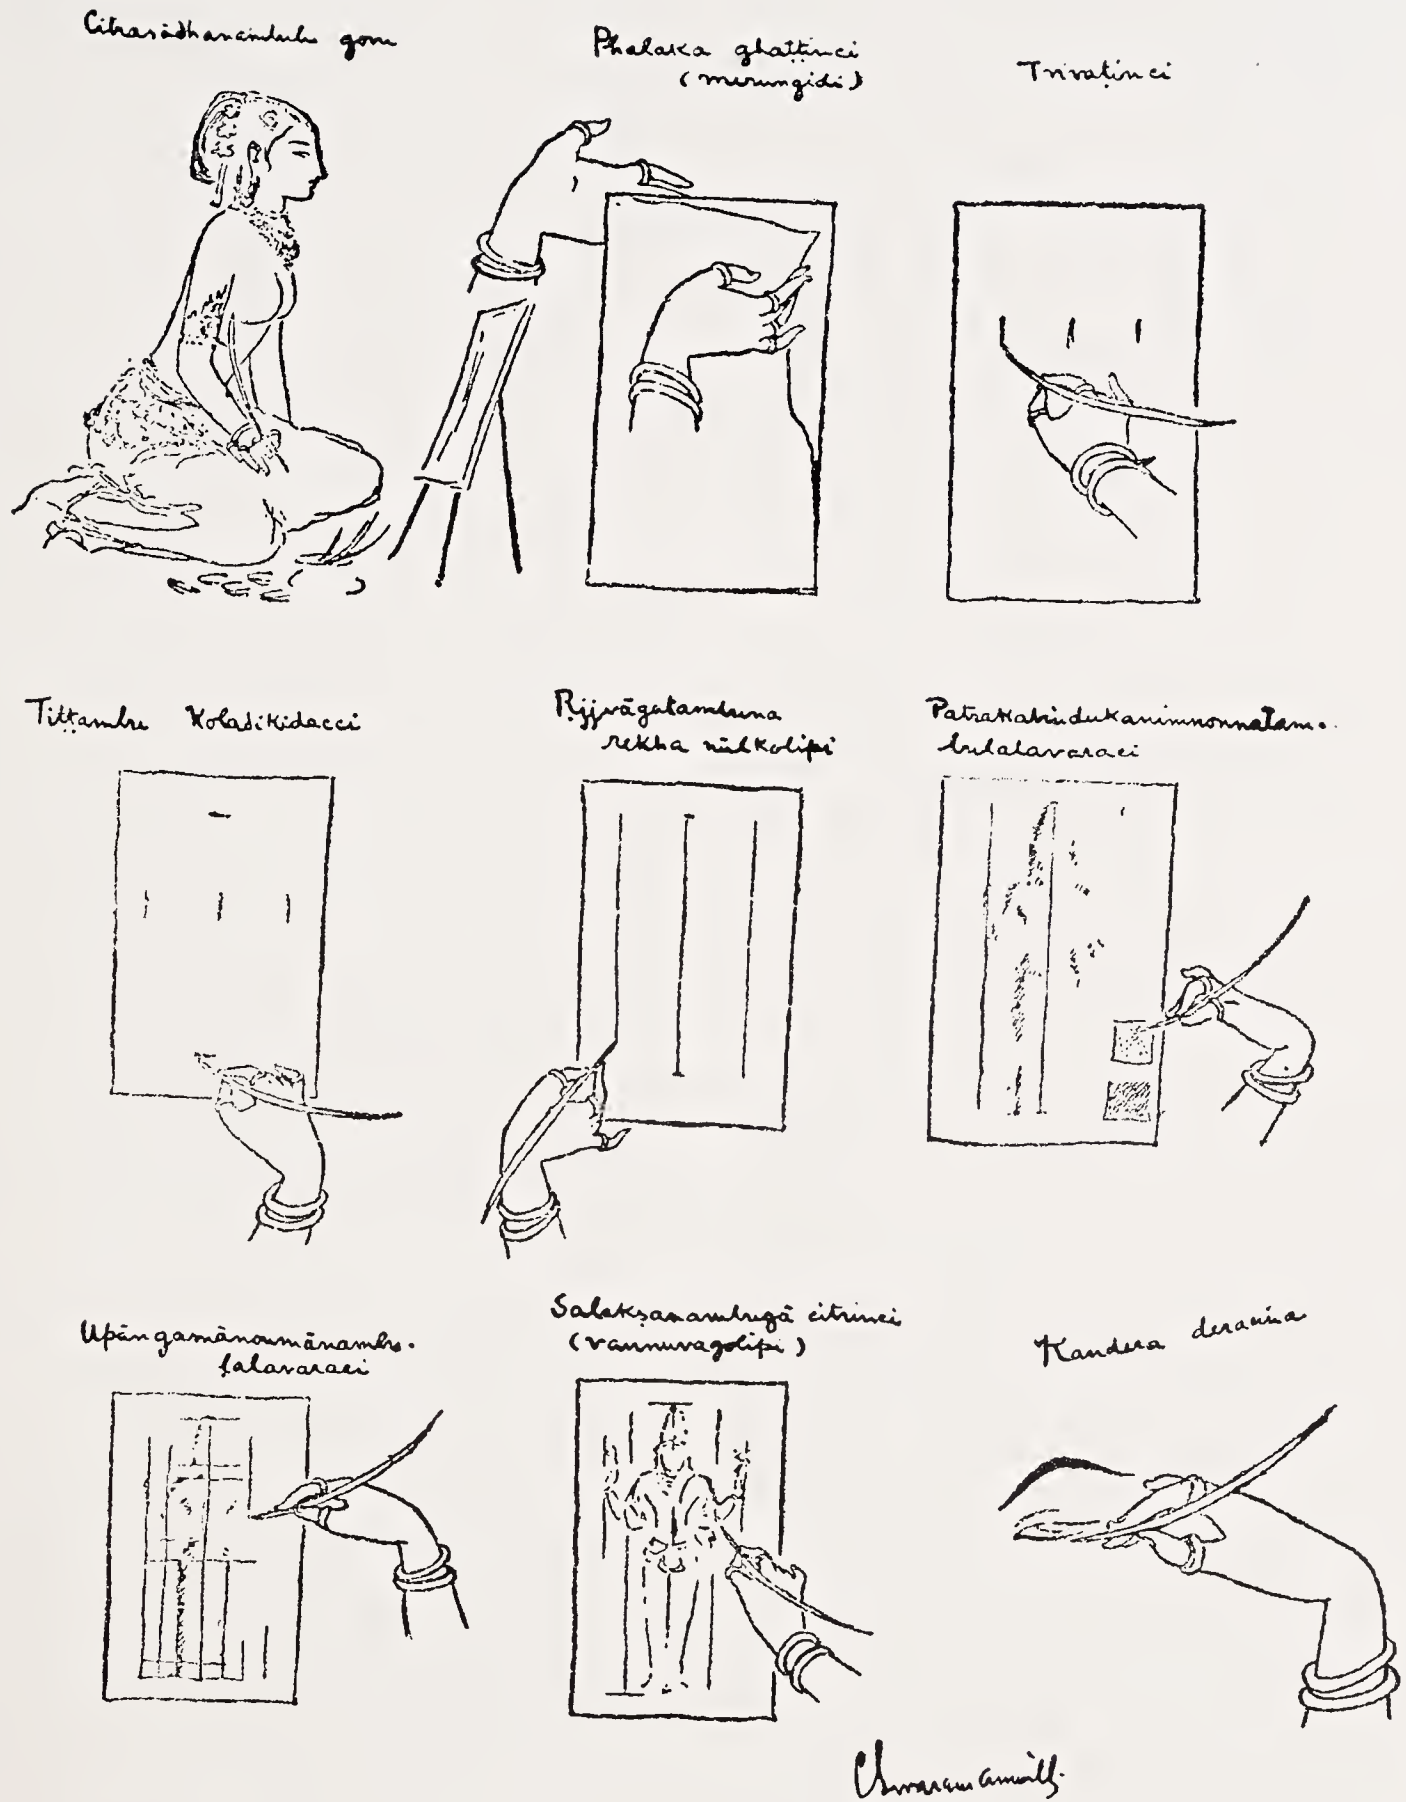 Citrasādhanambulu goni
Phalaka ghaṭṭinci
(merungidi)
Trivaṭinci
Tiṭṭambu Koladikidacci
Ṛjjvāgatambuna
rekha nūlkolipi
Patrakabindukanimnonnatam-
bulalavaraci
Upāngamānonmānambu-
lalavaraci
Salakṣaṇambugā citrinci
(vannuvagolipi)
Kandera deracina
CSivaramamurti